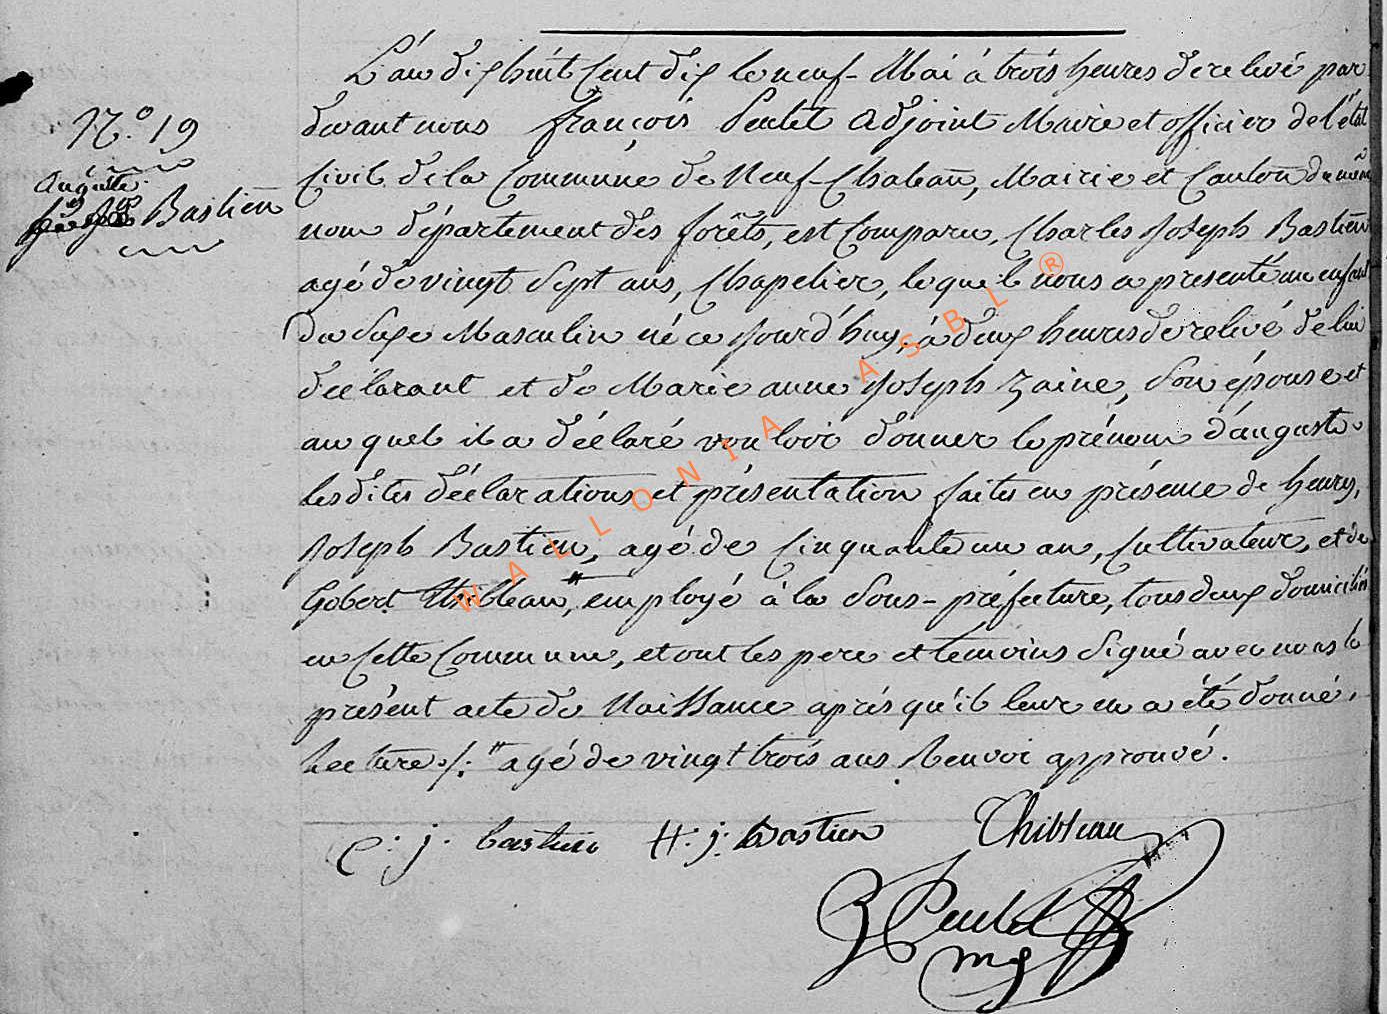 L'an dixhuit Cent dix le neuf Mai à trois heures de relevé par
devant nous françois Peulet Adjoint Maire et officier de l'état
Civil de la Commune de Neuf-Chateau, Mairie et Canton du même
nom département des forêts, est Comparu, Charles Joseph Bastien
agé de vingt Sept ans, Chapelier, lequel nous a presenté un enfant
du Sexe Masculin né ce Jourd'huy, à deux heures de relevé de lui
declarant et de Marie anne Joseph Zaine, Son épouse et
au quel il a déclaré vouloir donner le prénom d'auguste.
Les dites déclarations et présentation faites en présence de henry,
Joseph Bastien, agé de Cinquante un an, Cultivateur, et de
Gobert Thibleau," employé à la Sous-préfecture, tous deux domiciliés
en Cette Commune, et ont les pere et temoins Signé avec nous le
présent acte de Naissance après qu'il leur en a été donné,
Lecture ./. " agé de vingt trois ans Renvoi approuvé.
N.° 19
auguste
Bastien
C. j. bastien H: j: Bastien Thibleau
Peulet
WALLONIA ASBL ®